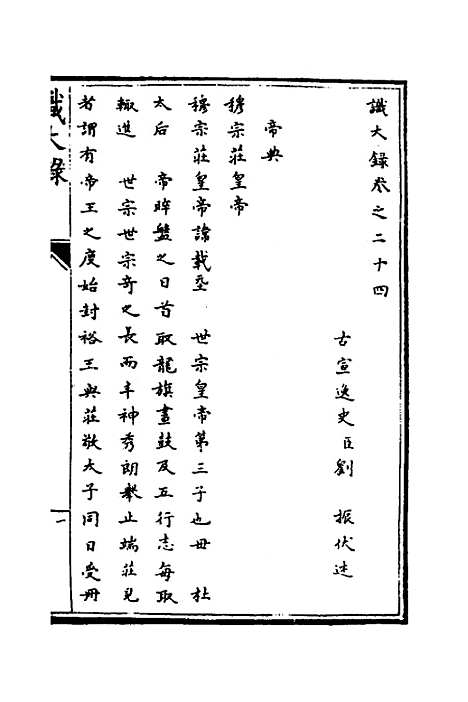 識大錄卷之二十四
古宣逸史臣劉 振伏述
帝典
穆宗莊皇帝
穆宗莊皇帝諱載垕 世宗皇帝第三子也母 杜
太后 帝晬盤之日首取龍旗畫鼓及五行志每取
輒進 世宗世宗奇之長而丰神秀朗舉止端莊見
者謂有帝王之度始封裕王與莊敬太子同日受冊
識大錄
一